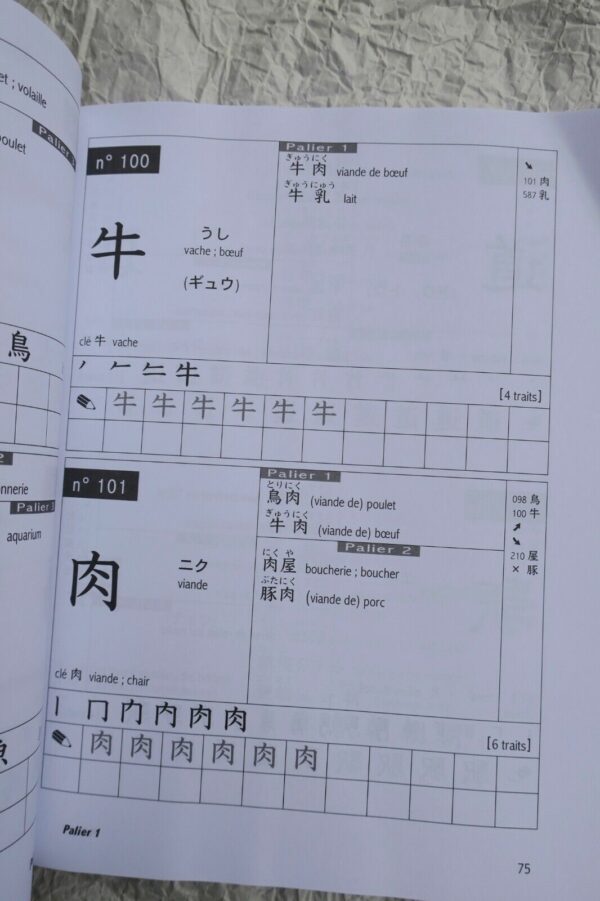 et ; volaille
Palier 1
poulet
鳥
2
onnerie
Palier 3
aquarium
n° 100
牛
うし
vache ; bœuf
(ギュウ)
clé 牛 vache
Palier 1
ぎゅうにく
牛肉 viande de bœuf
ぎゅうにゅう
牛乳 lait
101 肉
587 乳
牛
[4 traits]
牛 牛 牛 牛 牛 牛
n° 101
肉
ニク
viande
clé 肉 viande ; chair
Palier 1
とりにく
鳥肉 (viande de) poulet
ぎゅうにく
牛肉 (viande de) bœuf
Palier 2
にく や
肉屋 boucherie ; boucher
ぶたにく
豚肉 (viande de) porc
098 鳥
100 牛
210 屋
× 豚
丨 冂 内 内 肉 肉
[6 traits]
肉 肉 肉 肉 肉 肉
Palier 1
75